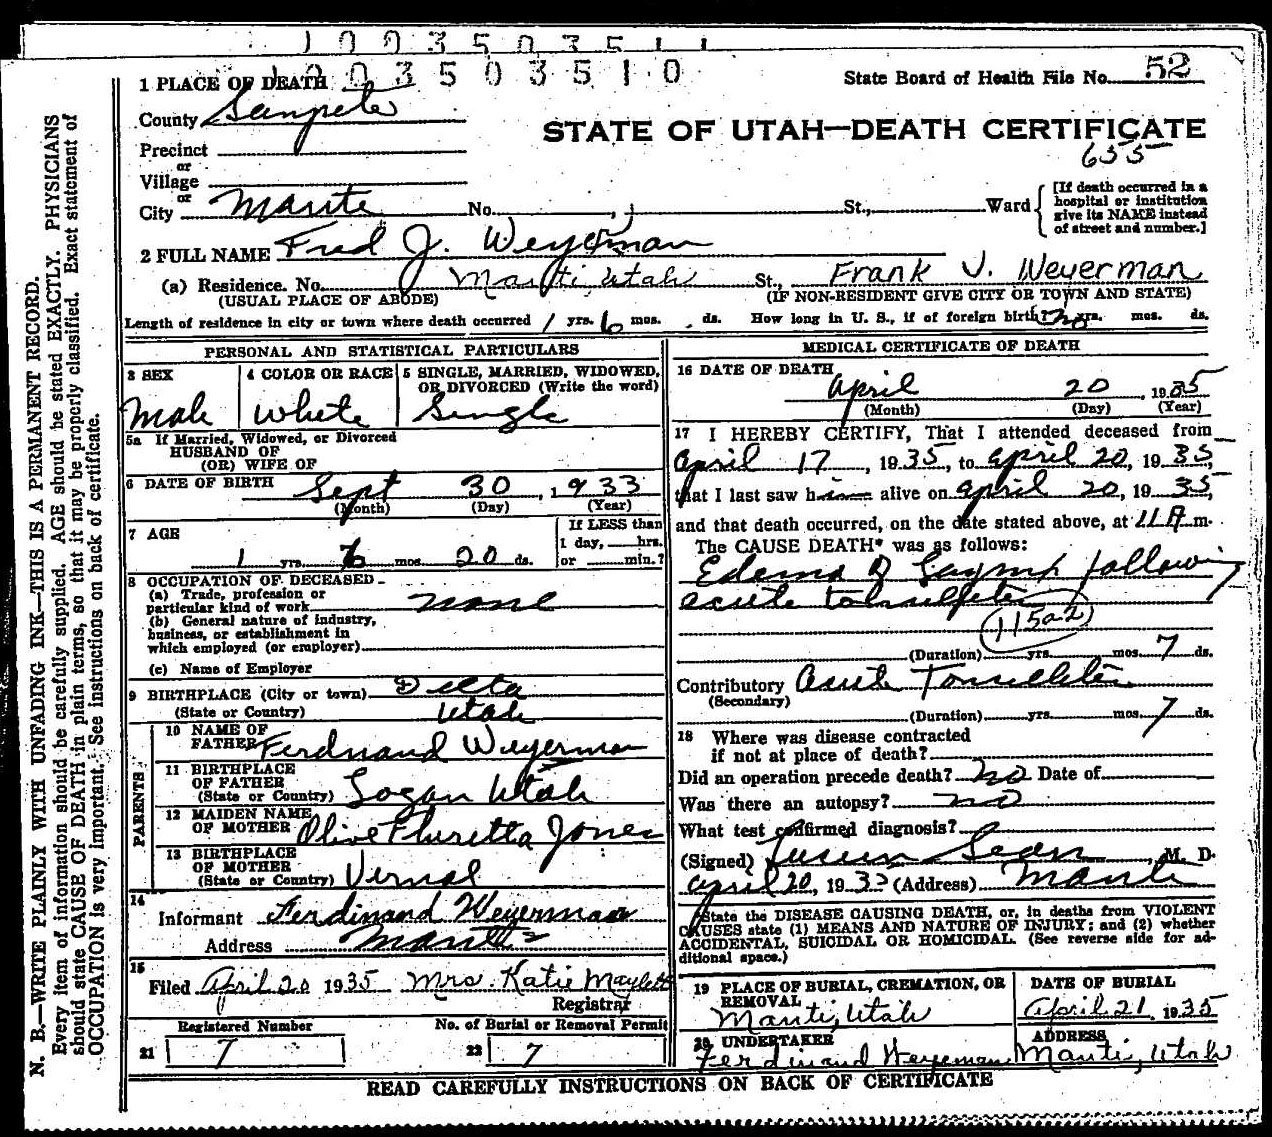 1003503511
1003503510
1 PLACE OF DEATH
State Board of Health File No. 52
County Sanpete
STATE OF UTAH—DEATH CERTIFICATE
655
Precinct
or
Village
or
City Mante No. , St., Ward
[If death occurred in a
hospital or institution
give its NAME instead
of street and number.]
2 FULL NAME Fred J. Weyerman
(a) Residence. No. Manti, Utah St., Frank J. Weyerman
(USUAL PLACE OF ABODE) (IF NON-RESIDENT GIVE CITY OR TOWN AND STATE)
Length of residence in city or town where death occurred 1 yrs. 6 mos. ds. How long in U. S., if of foreign birth yrs. mos. ds.
PERSONAL AND STATISTICAL PARTICULARS
3 SEX 4 COLOR OR RACE 5 SINGLE, MARRIED, WIDOWED,
OR DIVORCED (Write the word)
Male White Single
5a If Married, Widowed, or Divorced
HUSBAND OF
(OR) WIFE OF
6 DATE OF BIRTH Sept 30, 1933
(Month) (Day) (Year)
7 AGE
If LESS than
1 day, hrs.
or min.?
1 yrs. 6 mos. 20 ds.
8 OCCUPATION OF DECEASED
(a) Trade, profession or
particular kind of work none
(b) General nature of industry,
business, or establishment in
which employed (or employer)
(c) Name of Employer
9 BIRTHPLACE (City or town) Delta
(State or Country) Utah
PARENTS
10 NAME OF
FATHER Ferdnand Weyerman
11 BIRTHPLACE
OF FATHER
(State or Country) Logan Utah
12 MAIDEN NAME
OF MOTHER Olive Fluretta Jones
13 BIRTHPLACE
OF MOTHER
(State or Country) Vernal
14
Informant Ferdinand Weyerman
Address Manti
15
Filed April 20 1935 Mrs. Katie Maylett
Registrar
Registered Number No. of Burial or Removal Permit
21 7 22 7
MEDICAL CERTIFICATE OF DEATH
16 DATE OF DEATH
April 20, 1935
(Month) (Day) (Year)
17 I HEREBY CERTIFY, That I attended deceased from
April 17, 1935, to April 20, 1935,
that I last saw him alive on April 20, 1935,
and that death occurred, on the date stated above, at 11 A m.
The CAUSE DEATH* was as follows:
Edema of Larynx following
acute tonsillitis
115a2
(Duration) yrs. mos. 7 ds.
Contributory Acute Tonsillitis
(Secondary)
(Duration) yrs. mos. 7 ds.
18 Where was disease contracted
if not at place of death?
Did an operation precede death? no Date of
Was there an autopsy? no
What test confirmed diagnosis?
(Signed) , M. D.
April 20, 193 (Address) Manti
State the DISEASE CAUSING DEATH, or, in deaths from VIOLENT
CAUSES state (1) MEANS AND NATURE OF INJURY; and (2) whether
ACCIDENTAL, SUICIDAL OR HOMICIDAL. (See reverse side for ad-
ditional space.)
19 PLACE OF BURIAL, CREMATION, OR
REMOVAL
Manti, Utah
DATE OF BURIAL
April 21, 1935
20 UNDERTAKER
Ferdinand Weyerman
ADDRESS
Manti, Utah
READ CAREFULLY INSTRUCTIONS ON BACK OF CERTIFICATE
N. B.—WRITE PLAINLY WITH UNFADING INK—THIS IS A PERMANENT RECORD.
Every item of information should be carefully supplied. AGE should be stated EXACTLY. PHYSICIANS
should state CAUSE OF DEATH in plain terms, so that it may be properly classified. Exact statement of
OCCUPATION is very important. See instructions on back of certificate.